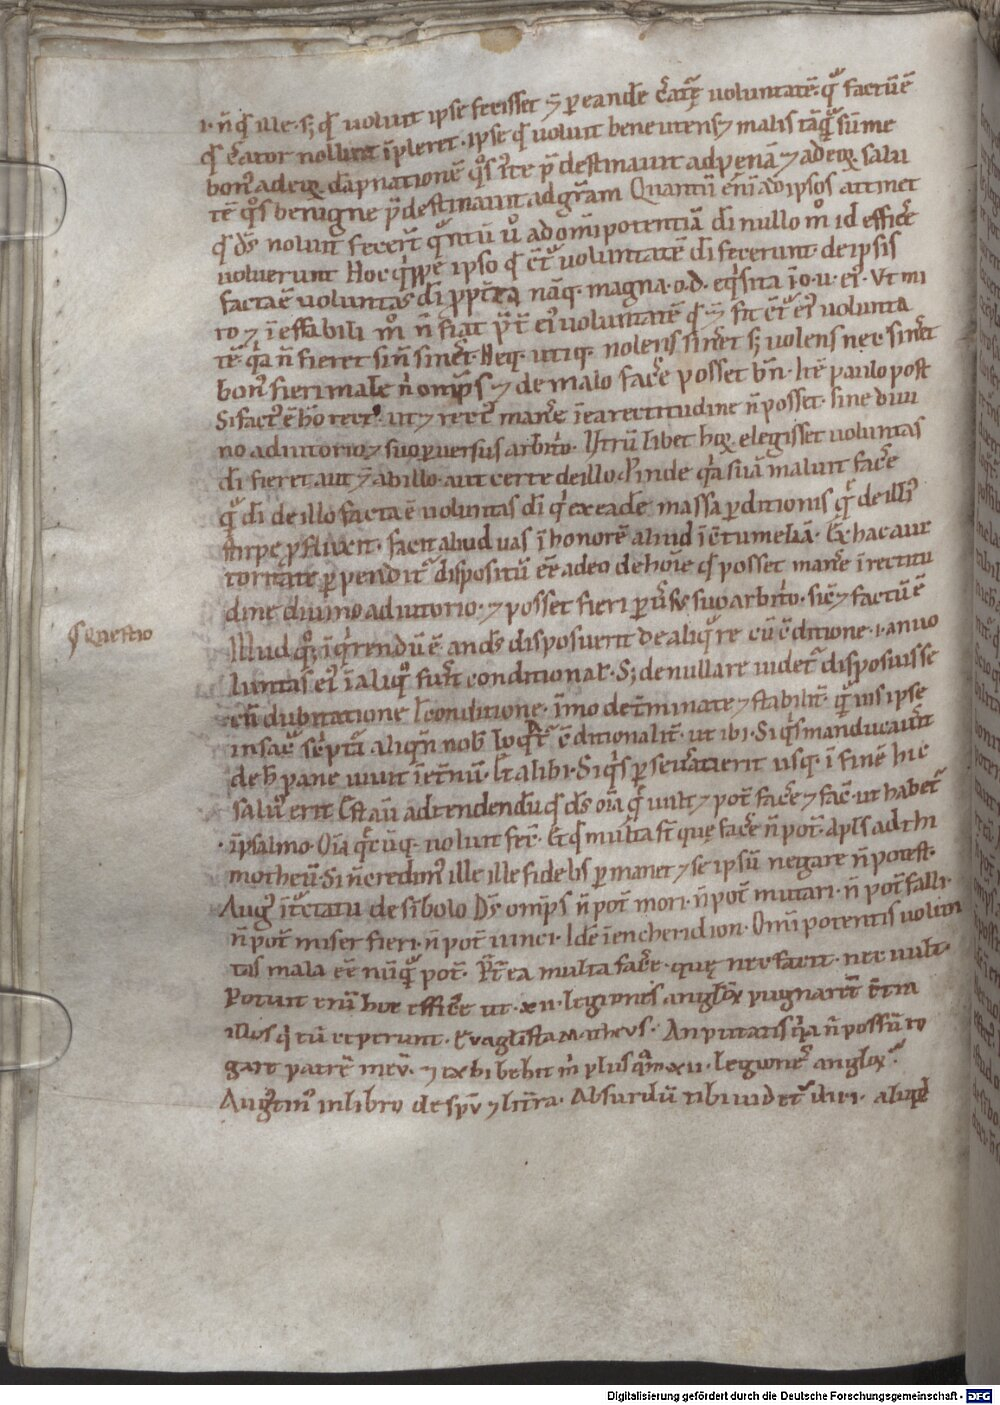 .i. n̄ qđ ille. sꝫ qđ uoluit ipse fecisset ⁊ per eandē c̄atr̨ę uoluntatē. qͣ factū ē
qđ c̄ator noluit īpleret. ipse qđ uoluit bene utens ⁊ malis tāqͣ sūme
bon᷒ ad eoꝝ dāpnationē qͦs iͤte p̄destinauit ad penā ⁊ ad eoꝝ salu
tē qͦs benigne p̄destinauit ad grām Quantū eni ad ipsos attinet
qđ dˢ noluit fecer̄t qͣntū uͦ ad omīpotentiā dī nullo mͦ id efficͤe
uoluerunt Hoc qͥppe ipso qđ c̄tͣ uoluntatē dī fecerunt. de ipsis
facta ē uoluntas dī ppt̄ea nāq. magna. o. d. eqͥsita ī o. u. ei᷒. Vt mi
ro ⁊ īeffabili mͦ n̄ fiat p̄t̄ ei᷒ uoluntatē qđ ⁊ fit c̄tͣ ei᷒ uolunta
tē. qͥa n̄ fieret si n̄ sineret. Neq. utiq. nolens sinēt sꝫ uolens nec sinēt
bon᷒ fieri male n̄ omp̄s ⁊ de malo facͤe posset bn̄. Itē paulo post
Si fact᷒ ē hō rect᷒. ut ⁊ rect᷒ manͤe ī ea rectitudine n̄ posset. sine diui
no adiutorio ⁊ suo peruersus arbitͥo. Vtrū libet hoꝝ elegisset uoluntas
dī fieret aut ⁊ ab illo. aut certe de illo. Proinde qͥa suā maluit facͤe
qͣ dī de illo facta ē uoluntas dī qͥ ex eadē massa perditionis qͤ de illi᷒
stirpe profluxit. facit aliud uas ī honorē aliud ī c̄tumeliā. Ex hac auc
toritate perpendit᷑ dispositū eē a deo de hoīe qđ posset manͤe ī rectitu
dine diuino adiutorio. ⁊ posset fieri peruersˢ suo arbitͥo. sic ⁊ factū ē
Questio
Illud qͦꝫ īqͥrendū ē an dˢ disposuerit de aliqͣ re cū c̄ditione .i. an uo
luntas ei᷒ ī aliqͦ fuerit conditional. Sꝫ de nulla re uidet᷑ disposuisse
cū dubitatione ł conditione. īmo det̄minate ⁊ stabilit̄. qͣuis ipse
in sacͣ scͥptͣ aliqn̄ nob̄ loqͣt᷑ c̄ditionalit̄. ut ibi. Siqͥs manducauerit
de h̄ pane uiuit īet̄nū. Et alibi. Siqͥs perseuerauerit usq. ī finē hic
salu᷒ erit Est aū adtendendū qđ dˢ oīa qͤ uult ⁊ pot̄ facͤe ⁊ fac̄. ut habet᷑
. ī psalmo. Oīa qͤcūq. uoluit fec̄. Et qđ multa st̄ quę facͤe n̄ pot̄. apls̄ ad thi
motheū. Si n̄ credim᷒ ille ille fidelis permanet ⁊ se ipsū negare n̄ potest.
Aug᷒ ī tͣctatu de sībolo Dˢ omp̄s n̄ pot̄ mori. n̄ pot̄ mutari. n̄ pot̄ falli.
n̄ pot̄ miser fieri. n̄ pot̄ uinci. Idē ī encheridion. Omīpotentis uolun
tas mala eē nūqͣ pot̄. P̄t̄ea multa facͤe. quę nec facit. nec uult.
Potuit enī hoc efficͤe ut .xii. legiones angloꝝ pugnarēt c̄tra
illos qͥ eū ceperunt. Evāglista Matheus. An putatis qͥa n̄ possū ro
gare patrē meū. ⁊ exhibebit mͥ plus qͣm .xii. legiones angloꝝ.
Aug᷒tin᷒ in libro de spū ⁊ litt̄ra. Absurdū tibi uidet᷑ dici. aliqđ